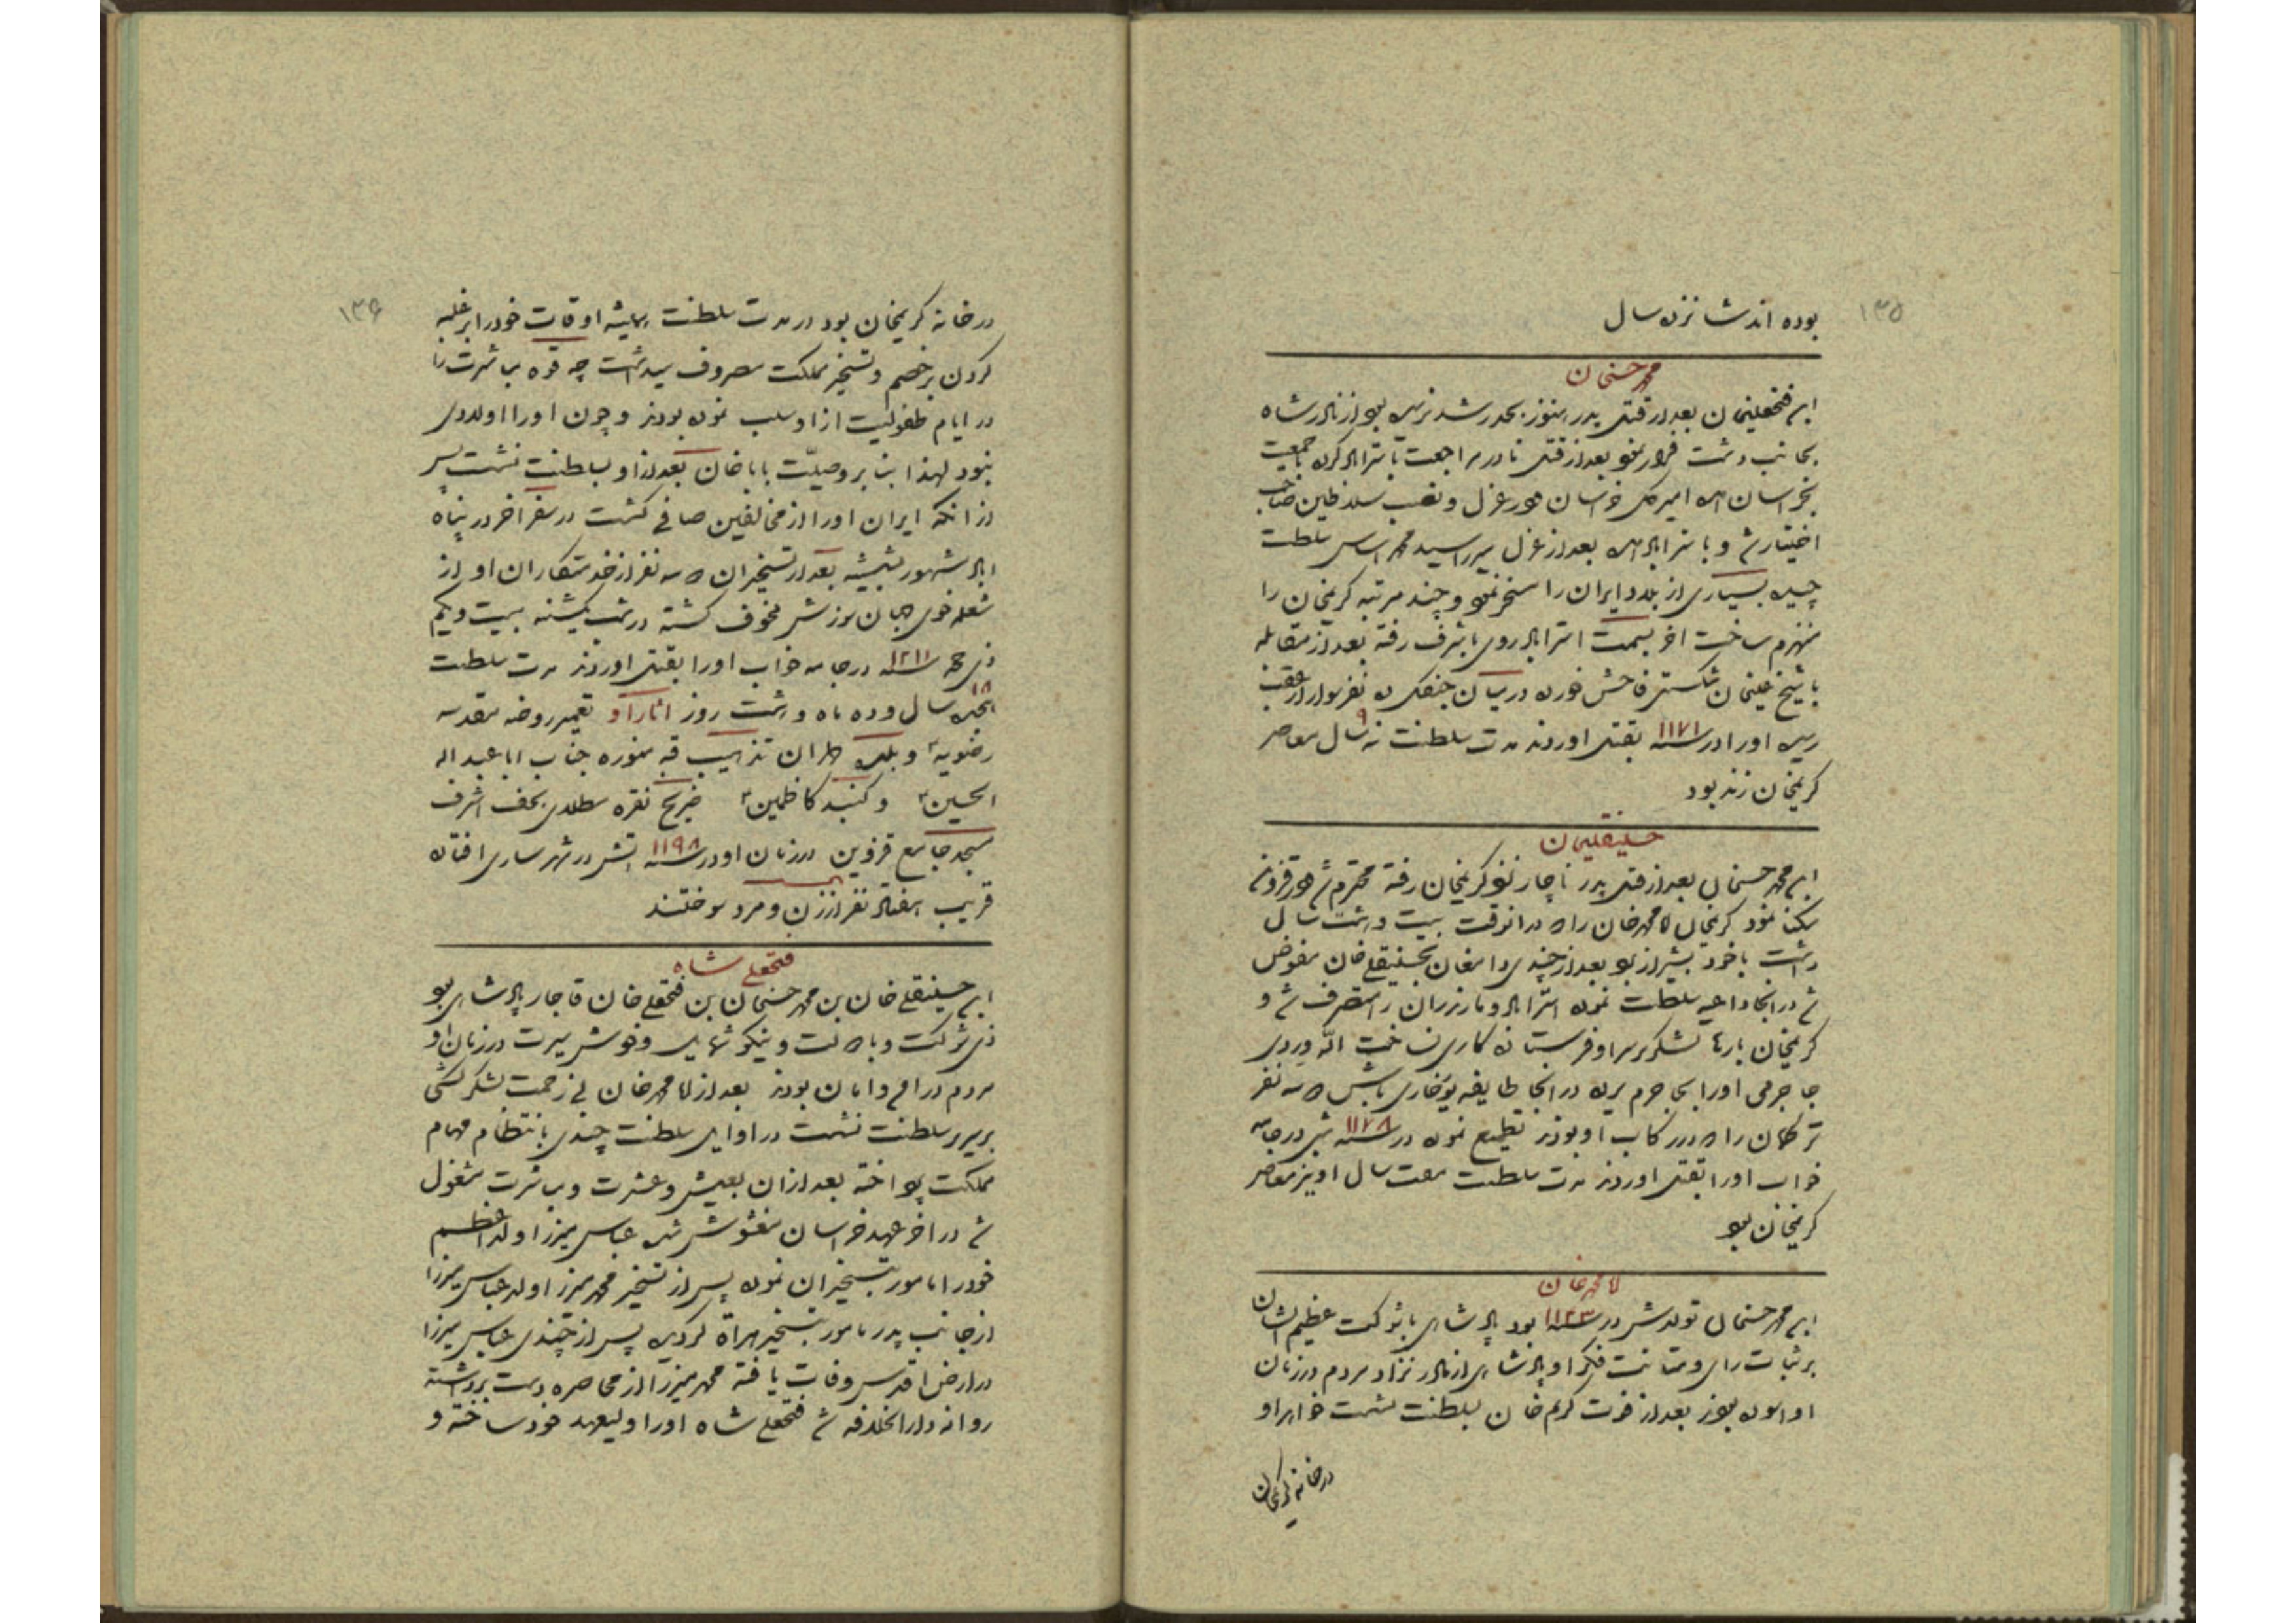 ۱۳۵
بوده اند شانزده سال
محمد حسنخان
ابن فتحعلیخان بعد از قتل پدر هنوز بحد رشد نرسیده بود از نادر شاه
بجانب دشت فرار نمود بعد از قتل نادر مراجعت باستراباد کرده با جمعیت
بخراسان امده امیر کل خراسان شده در عزل و نصب سلاطین صاحب
اختیار شد و باستراباد امده بعد از عزل میرزا سید محمد اساس سلطنت
چیده بسیاری از بلاد ایران را مسخر نمود و چند مرتبه کریمخان را
منهزم ساخت اخر بسمت استراباد روی باشرف رفته بعد از مقابله
با شیخ علیخان شکستی فاحش خورده در میان جنگل ده نفر سوار از عقب
رسیده او را در سنه ۱۱۷۱ بقتل اوردند مدت سلطنت نه سال ۹ معاصر
کریمخان زند بود
حسینقلیخان
ابن محمد حسنخان بعد از قتل پدر ناچار نزد کریمخان رفته محترم شد در قزوین
سکنا نمود کریمخان اقا محمد خان را که در انوقت بیست و هشت سال
داشت با خود بشیراز برد بعد از چندی دامغان بحسینقلی خان مفوض
شد در انجا داعیه سلطنت نموده استراباد و مازندران را متصرف شد و
کریمخان بارها لشکر بر سر او فرستاده کاری نساخت الله ویردی
جاجرمی او را بجاجرم برده در انجا طایفه یوخاری باش که سه نفر
ترکمان را که در رکاب او بودند تطمیع نموده در سنه ۱۱۷۸ شبی در جامه
خواب او را بقتل اوردند مدت سلطنت هفت سال او نیز معاصر
کریمخان بود
اقا محمد خان
ابن محمد حسنخان تولدش در سنه ۱۱۲۳ بود پادشاهی با شوکت عظیم الشان
بر ثبات رای و متانت فکر او پادشاهی از مادر نزاد مردم در زمان
او اسوده بودند بعد از فوت کریم خان بسلطنت نشست خواهر او
در خانه کریمخان
۱۳۶
در خانه کریمخان بود در مدت سلطنت همیشه اوقات خود را بر غلبه
کردن بر خصم و تسخیر مملکت مصروف میداشت چه قوه مباشرت را
در ایام طفولیت از او سلب نموده بودند و چون او را اولادی
نبود لهذا بنا بر وصیّت بابا خان بعد از او بسلطنت نشست پس
از انکه ایران او را از مخالفین صافی گشت در سفر اخر در پناه
اباد مشهور بشیشه بعد از تسخیر ان که سه نفر از خدمتکاران او از
شعله خوی جهان سوزش مخوف گشته در شب یکشنبه بیست و یکم
ذی حجه سنه ۱۲۱۱ در جامه خواب او را بقتل اوردند مدت سلطنت
۱۸
هجده سال و ده ماه و هشت روز اثار او تعمیر روضه مقدسه
رضویه ع و بلده طهران تذهیب قبه منوره جناب ابا عبد اله
الحسین ع و گنبد کاظمین ع ضریح نقره مطلای نجف اشرف
مسجد جامع قزوین در زمان او در سنه ۱۱۹۸ اتش در شهر ساری افتاده
قریب هفتاد نفر از زن و مرد سوختند
فتحعلی شاه
ابن حسینقلی خان بن محمد حسنخان بن فتحعلی خان قاجار پادشاهی بود
ذی شوکت و با صلت و نیکو شمایل و خوش سیرت در زمان او
مردم در رفاه و امان بودند بعد از اقا محمد خان بی زحمت لشکر کشی
بر سریر سلطنت نشست در اوایل سلطنت چندی بانتظام مهام
مملکت پرداخته بعد از ان بعیش و عشرت و مباشرت مشغول
شد در اخر عهد خراسان مغشوش شده عباس میرزا ولد اعظم
خود را مامور بتسخیر ان نموده پس از تسخیر محمد میرزا ولد عباس میرزا
از جانب پدر مامور بتسخیر هراة گردیده پس از چندی عباس میرزا
در ارض اقدس وفات یافته محمد میرزا از محاصره دست برداشته
روانه دار الخلافه شد فتحعلی شاه او را ولیعهد خود ساخته و